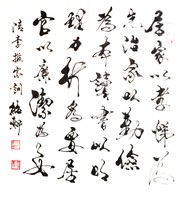 居家以孝悌為
先治家以勤儉
為本讀書以明
理力行為要居
官以廉潔為
清李家訓